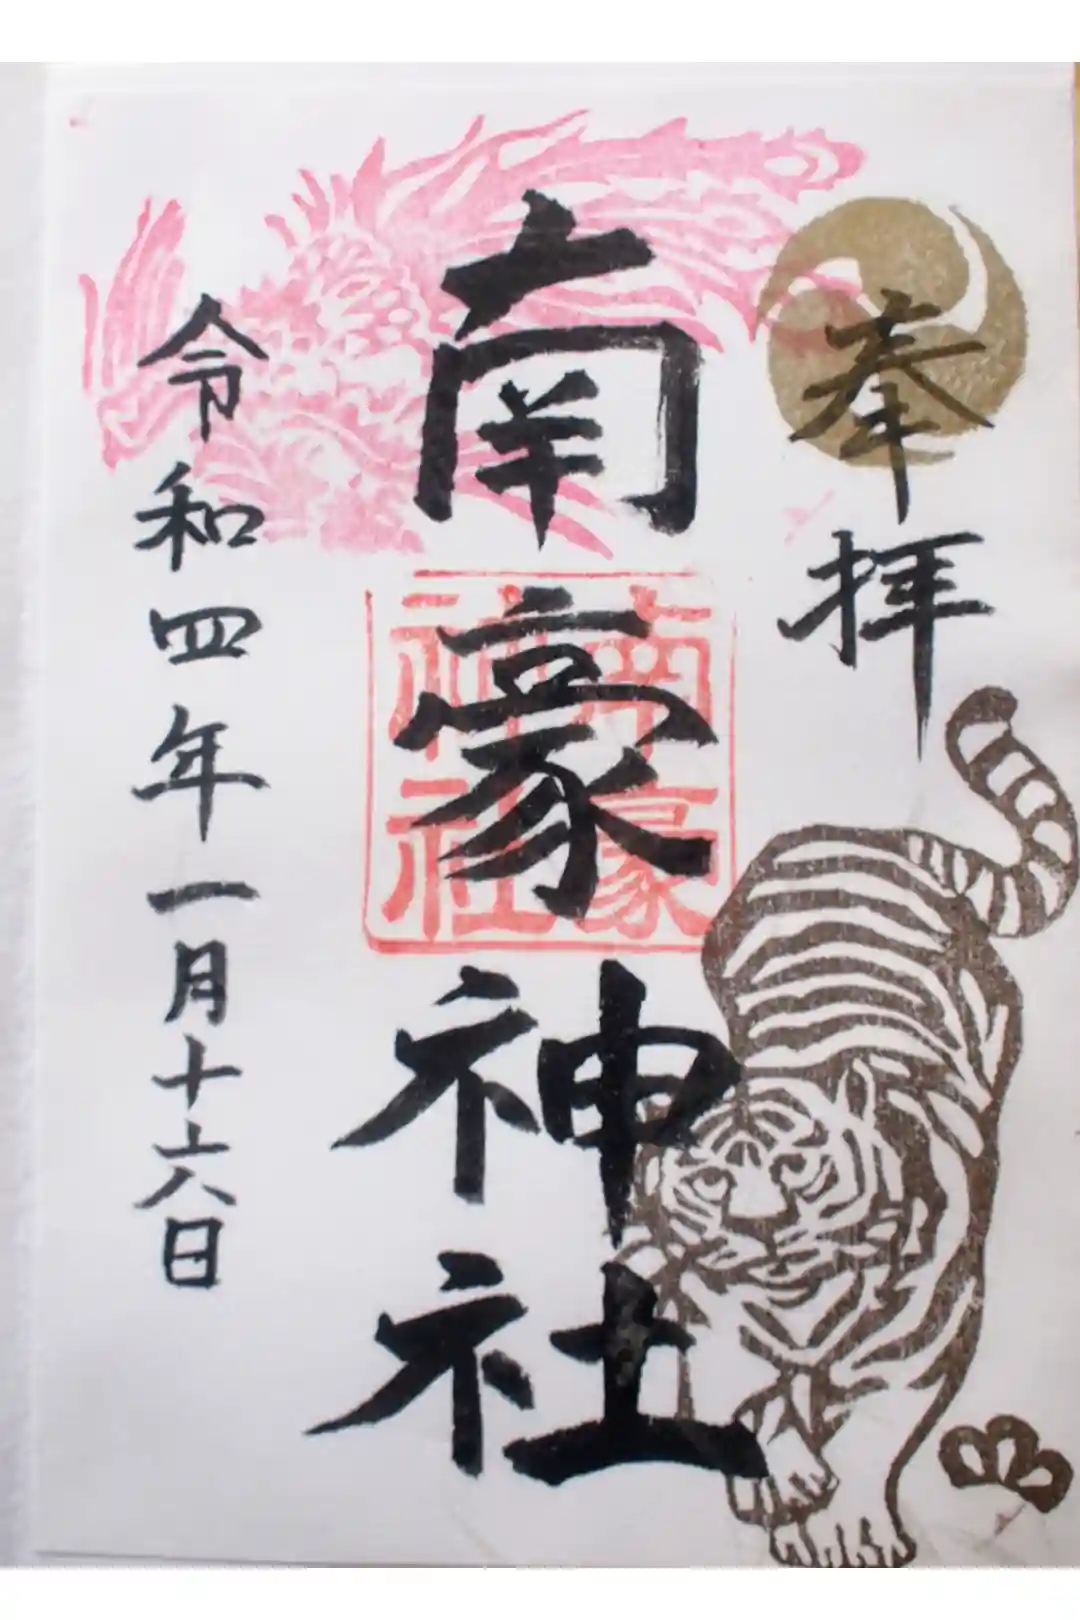 奉拝
南豪神社
南豪神社
令和四年一月十六日